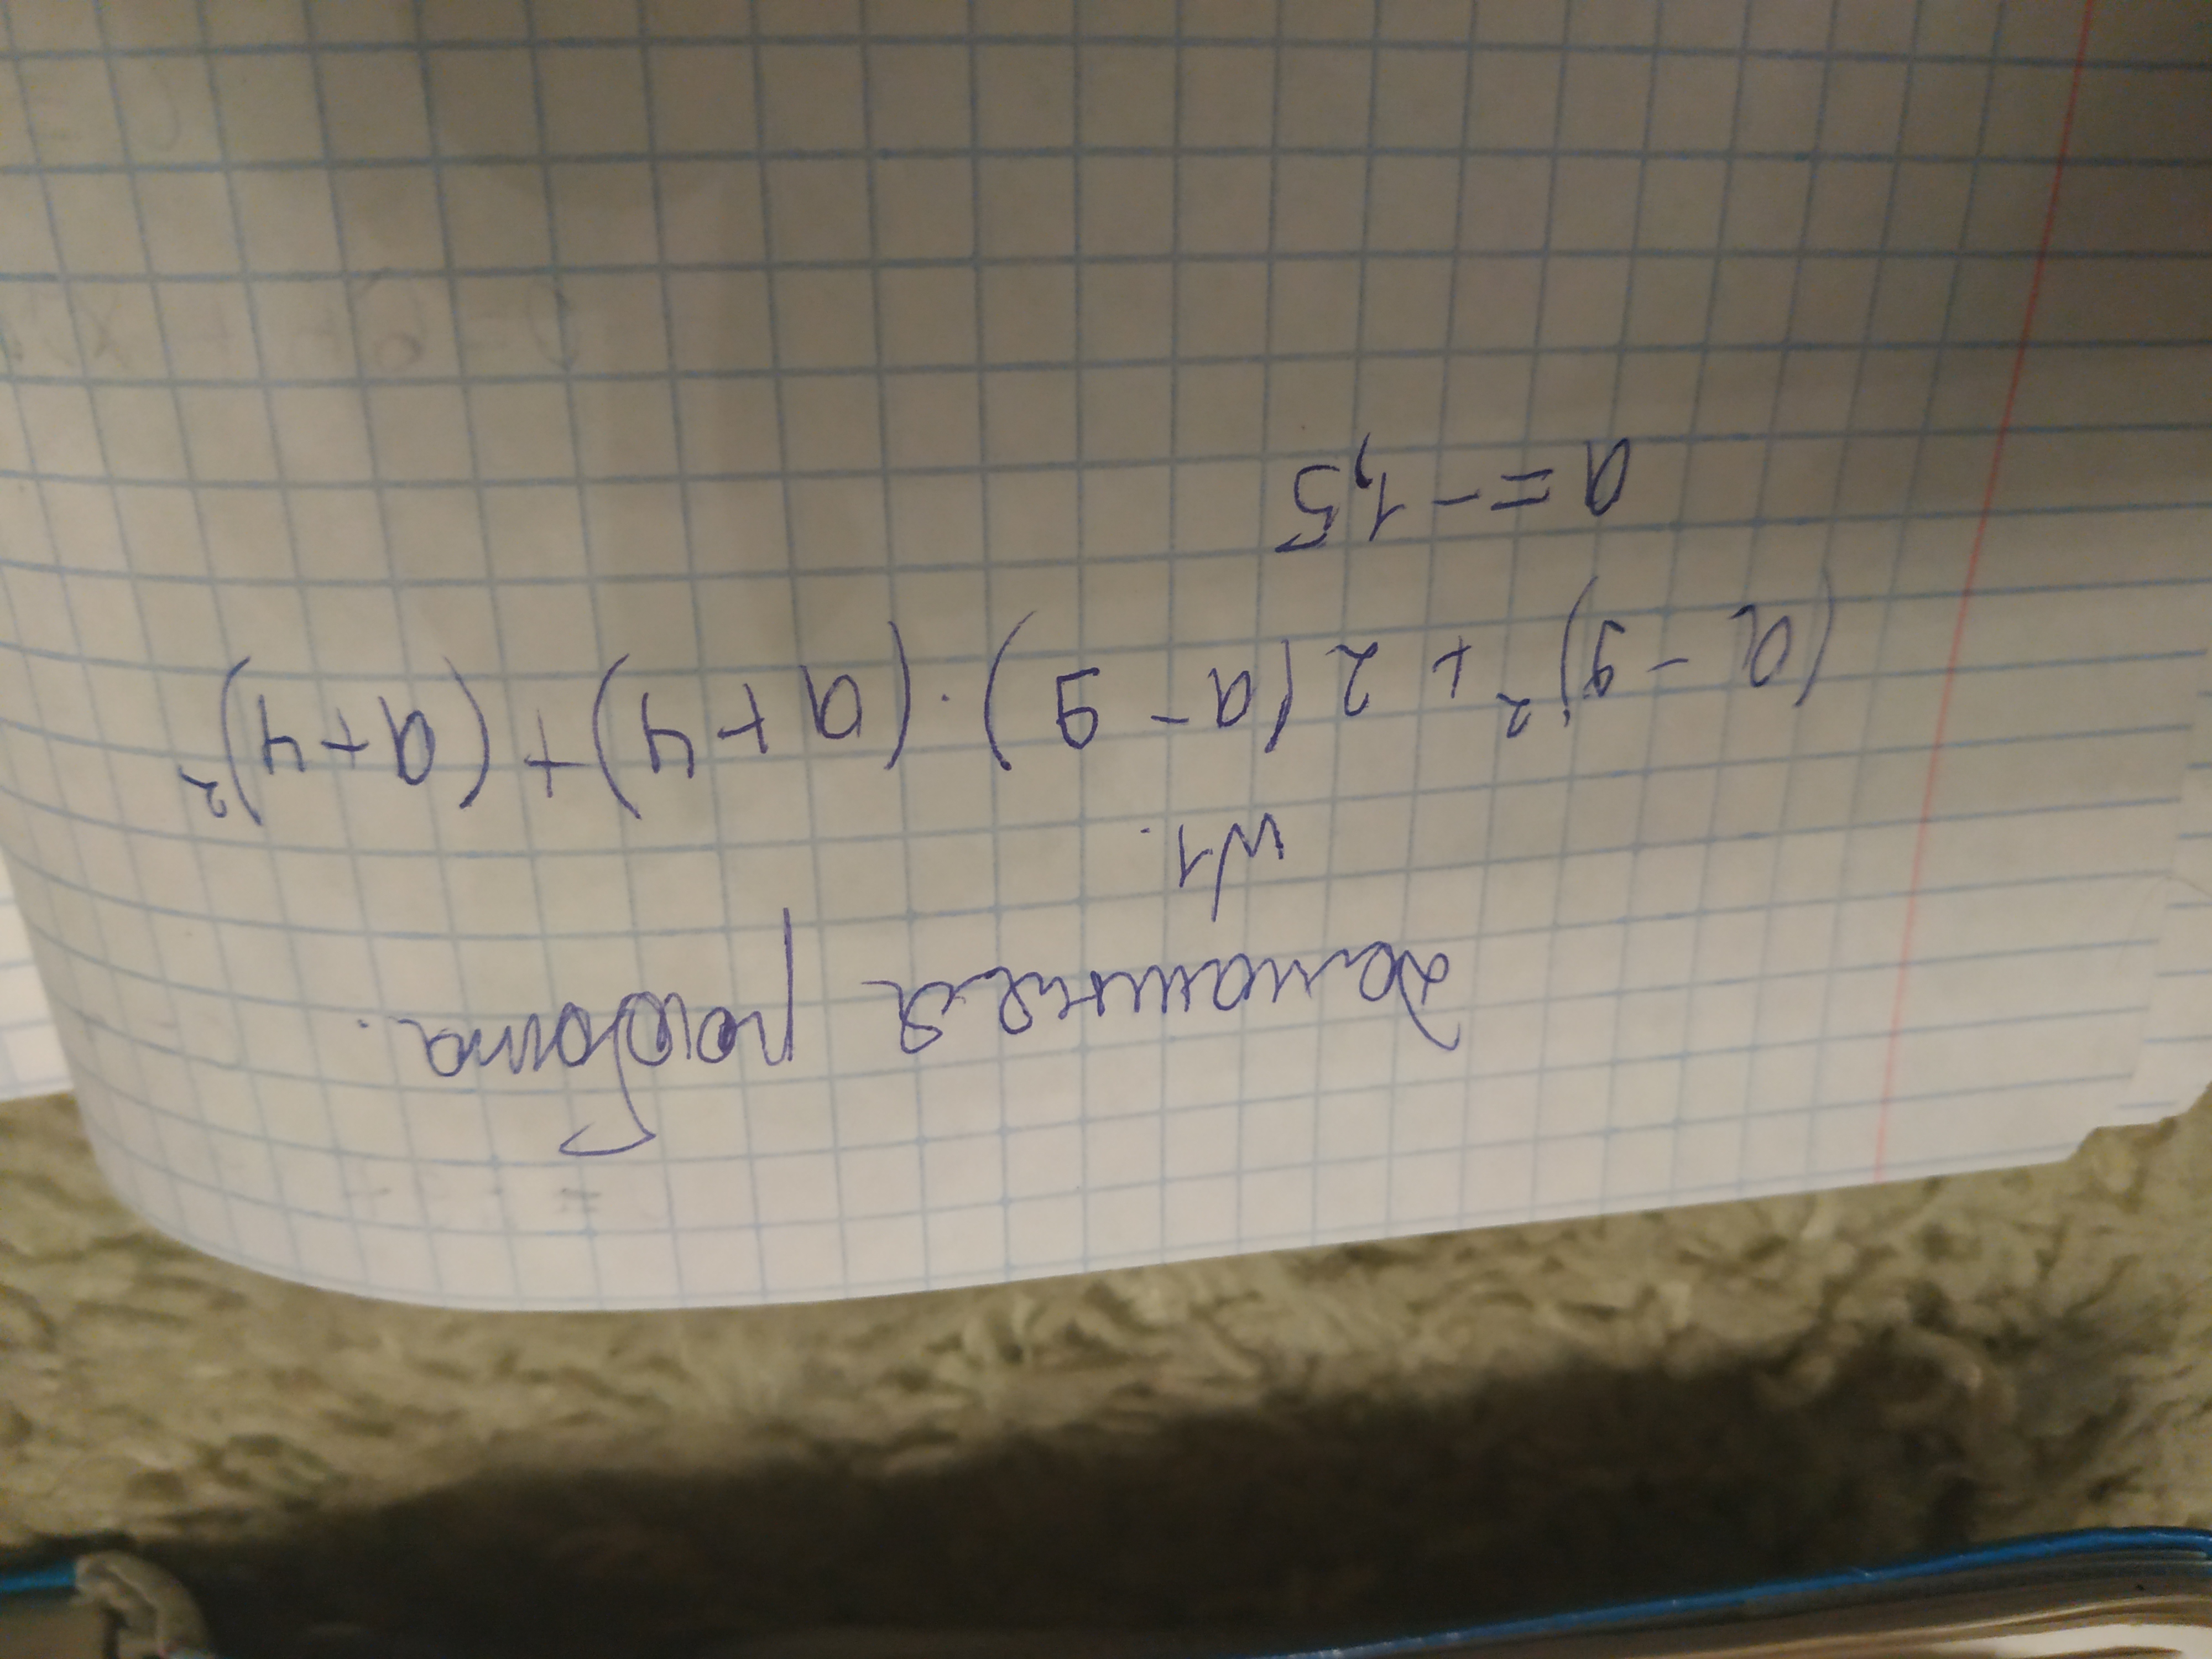 домашняя работа.
№1.
(a - 9)² + 2(a - 9) · (a + 4) + (a + 4)²
a = - 1,5